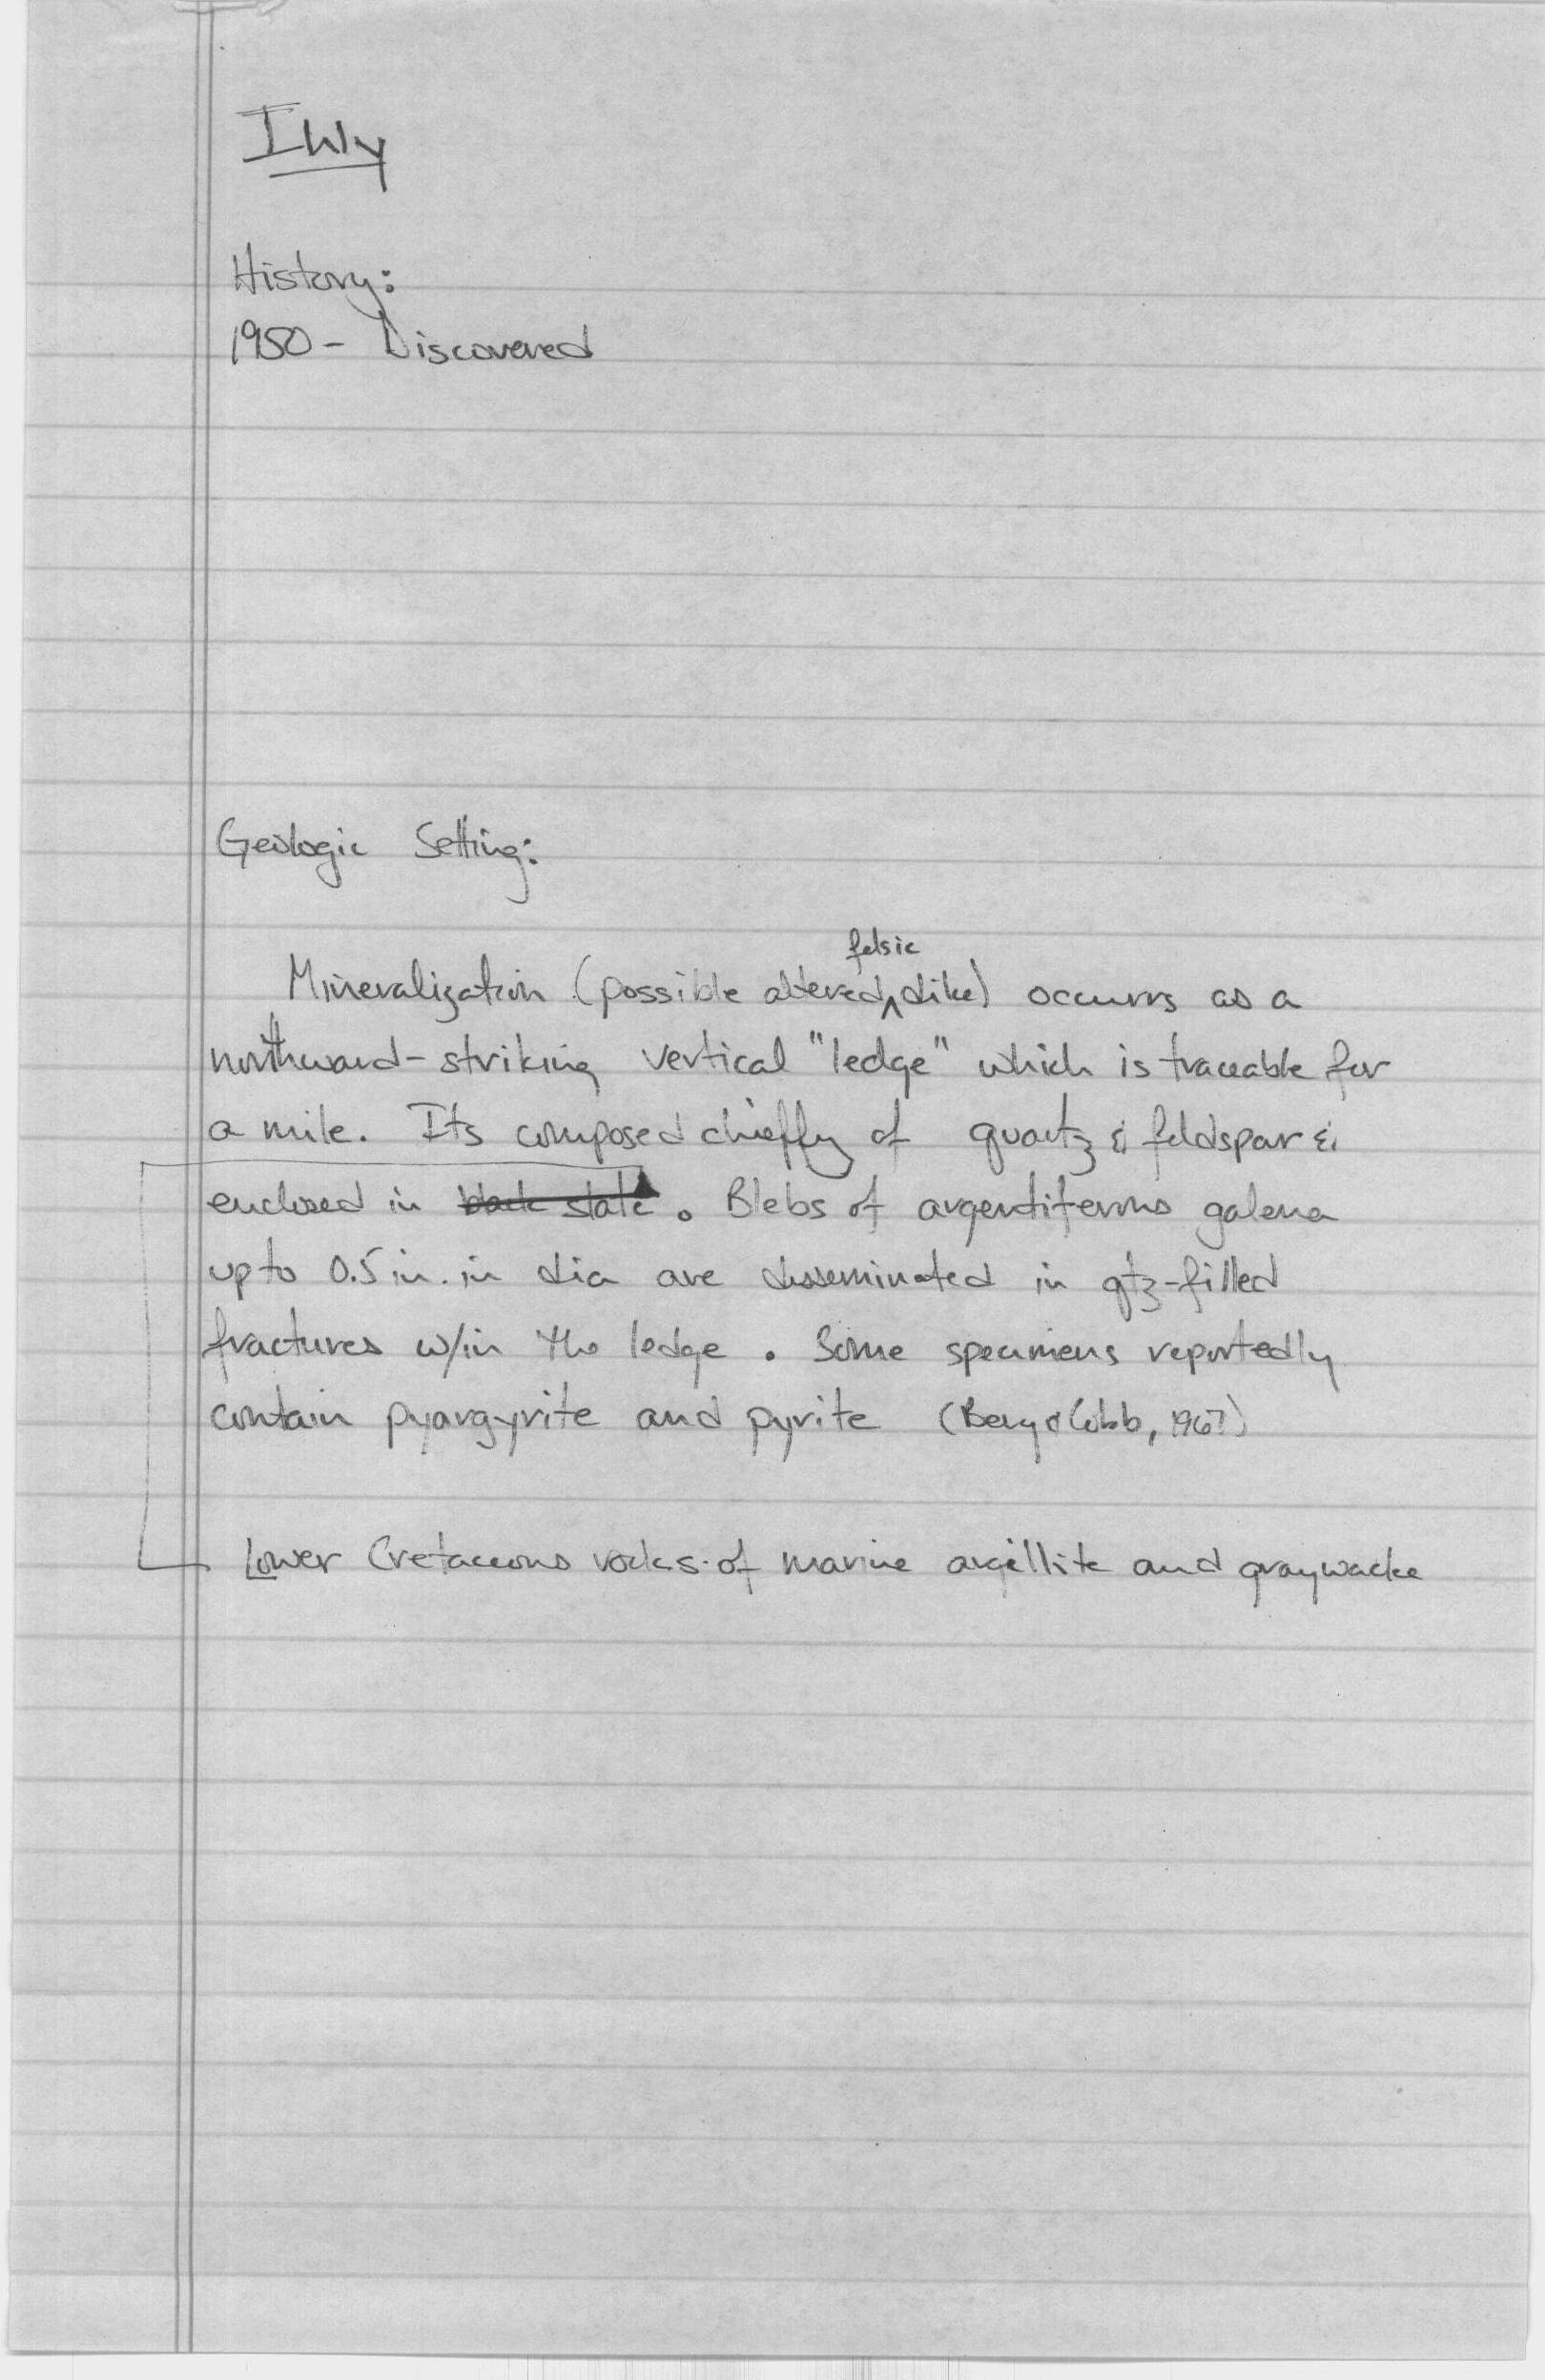 Ihly
History:
1950 - Discovered
Geologic Setting:
felsic
Mineralization (possible altered ^ dike) occurrs as a
northward-striking vertical "ledge" which is traceable for
a mile. Its composed chiefly of quartz & feldspar &
enclosed in black slate. Blebs of argentiferous galena
up to 0.5 in. in dia are disseminated in qtz-filled
fractures w/in the ledge. Some specimens reportedly
contain pyargyrite and pyrite (Berg & Cobb, 1967)
Lower Cretaceous rocks of marine argillite and graywacke